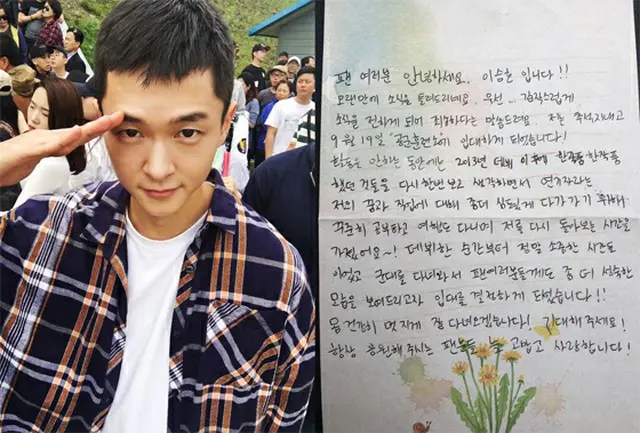 팬 여러분 안녕하세요.. 이승호 입니다!!
오랜만에 소식을 들려드리네요. 우선... 갑작스럽게
소식을 전하게 되어 죄송하다는 말씀드려요. 저는 추석지내고
9월 19일 훈련소에 입대하게 되었습니다!
활동을 안하는 동안에는 2013년 데뷔 이후에 한작품 한작품
했던 것들을 다시한번 보고 생각하면서 연기자라는
저의 꿈과 직업에 대해 좀더 심도있게 다가가기 위해
꾸준히 공부하고 여행도 다니며 저를 다시 돌아보는 시간을
가졌어요~! 데뷔한 순간부터 정말 소중한 시간들
이었고 군대를 다녀와서 팬여러분들께도 좀 더 성숙한
모습을 보여드리고자 입대를 결정하게 되었습니다!!
몸 건강히 멋지게 잘 다녀오겠습니다! 기대해주세요!
항상 응원해주시는 팬분들 늘 고맙고 사랑합니다!